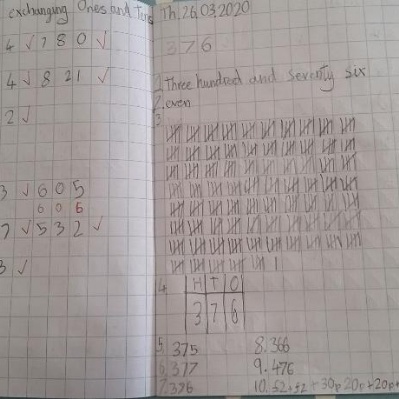 exchanging Ones and Tens
4 √ 7 8 0 √
4 √ 8 21 √
2 √
3 √ 6 0 5
6 0 6
7 √ 5 3 2 √
3 √
Th. 26.03.2020
376
1. Three hundred and Seventy six
2. even
3.
4. H T O
3 7 6
5. 375
6. 377
7. 386
8. 366
9. 476
10. £2+£2+30p 20p+20p+